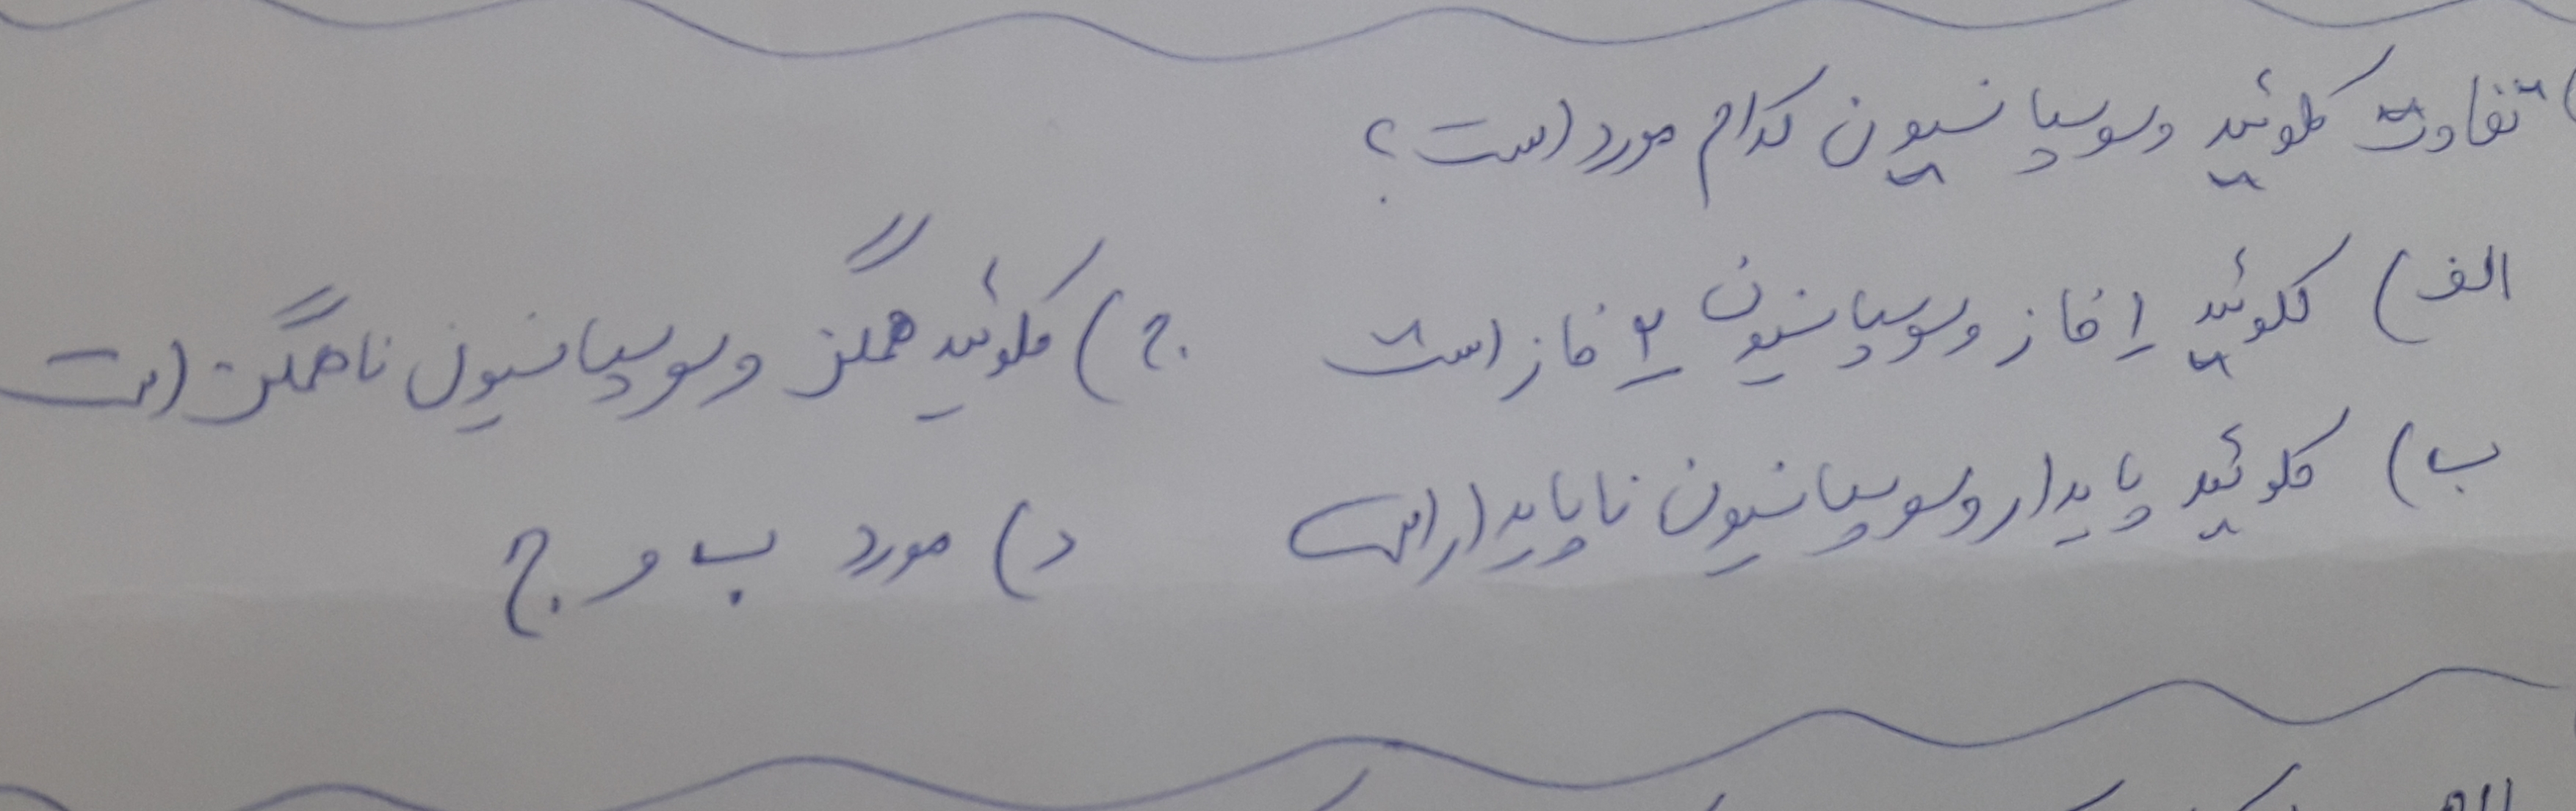 تفاوت کلوئید و سوسپانسیون کدام مورد است؟
الف) کلوئید ۱ فاز و سوسپانسیون ۲ فاز است ج) کلوئید همگن و سوسپانسیون ناهمگن است
ب) کلوئید پایدار و سوسپانسیون ناپایدار است د) مورد ب و ج